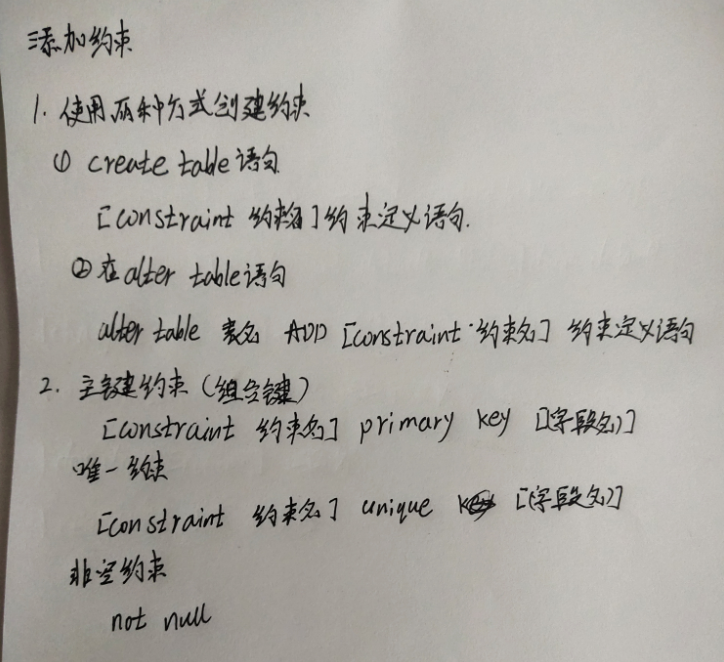 添加约束
1. 使用两种方式创建约束
① create table语句
[constraint 约束名]约束定义语句.
②在alter table语句
alter table 表名 ADD [constraint 约束名] 约束定义语句
2. 主键约束(组合键)
[constraint 约束名] primary key [(字段名)]
唯一约束
[constraint 约束名] unique [(字段名)]
非空约束
not null